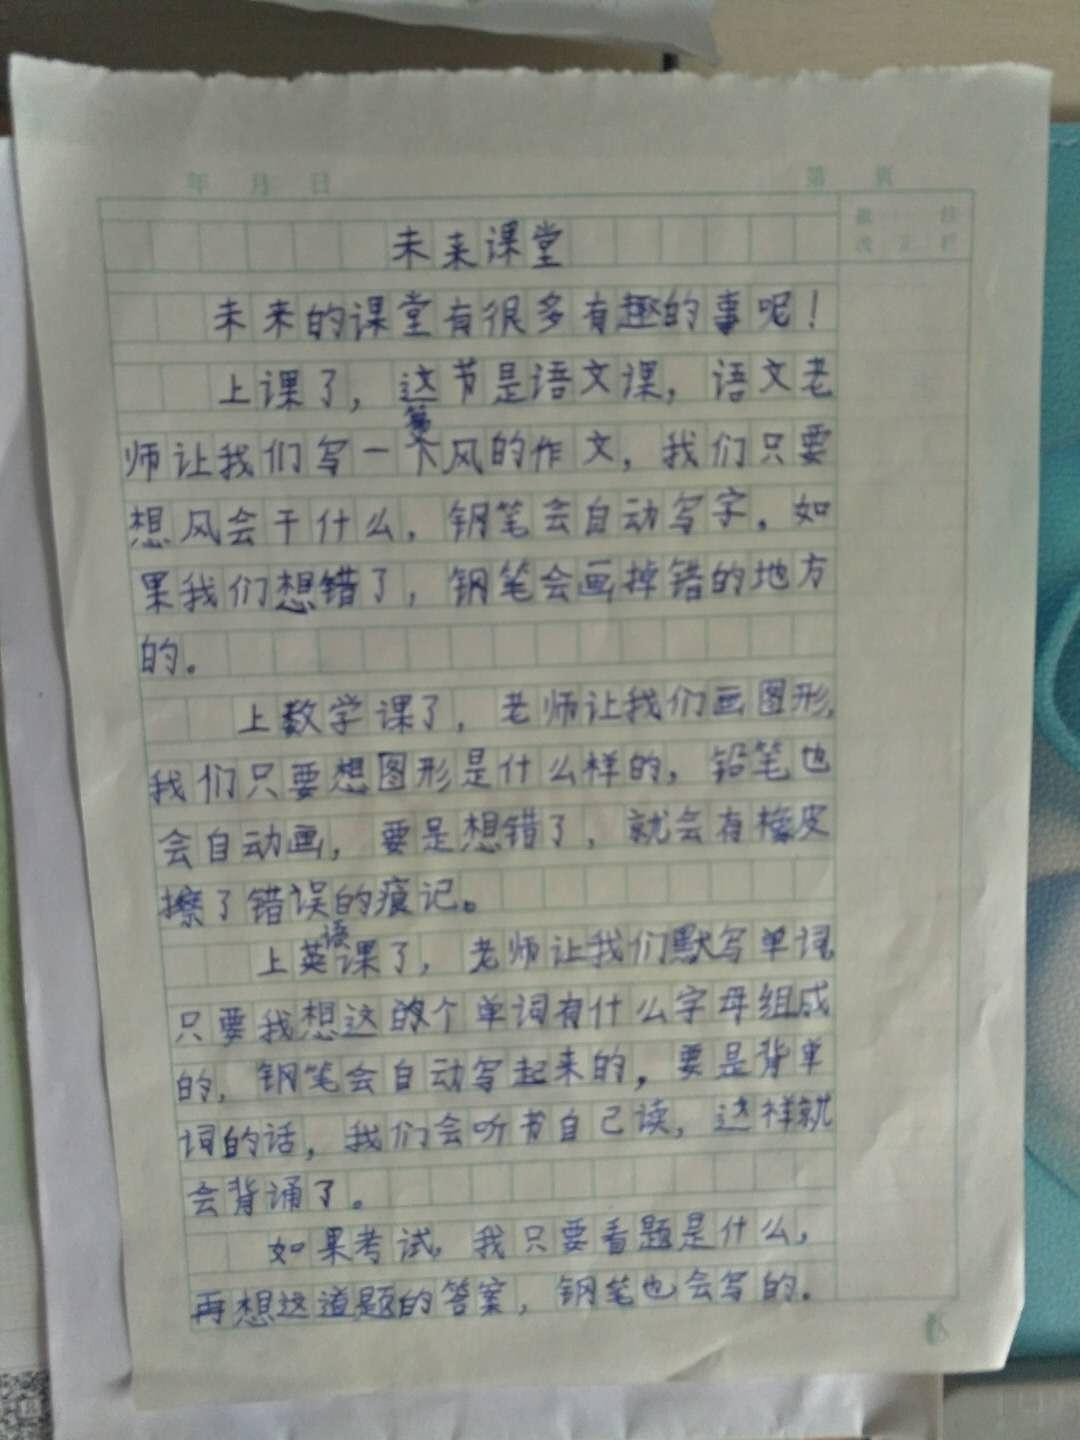 年 月 日 第 页
未来课堂
未来的课堂有很多有趣的事呢！
上课了，这节是语文课，语文老
师让我们写一篇风的作文，我们只要
想风会干什么，钢笔会自动写字。如
果我们想错了，钢笔会画掉错的地方
的。
上数学课了，老师让我们画图形，
我们只要想图形是什么样的，铅笔也
会自动画，要是想错了，就会有橡皮
擦了错误的痕记。
上英语课了，老师让我们默写单词
只要我想这的个单词有什么字母组成
的，钢笔会自动写起来的，要是背单
词的话，我们会听书自己读，这样就
会背诵了。
如果考试，我只要看题是什么，
再想这道题的答案，钢笔也会写的。